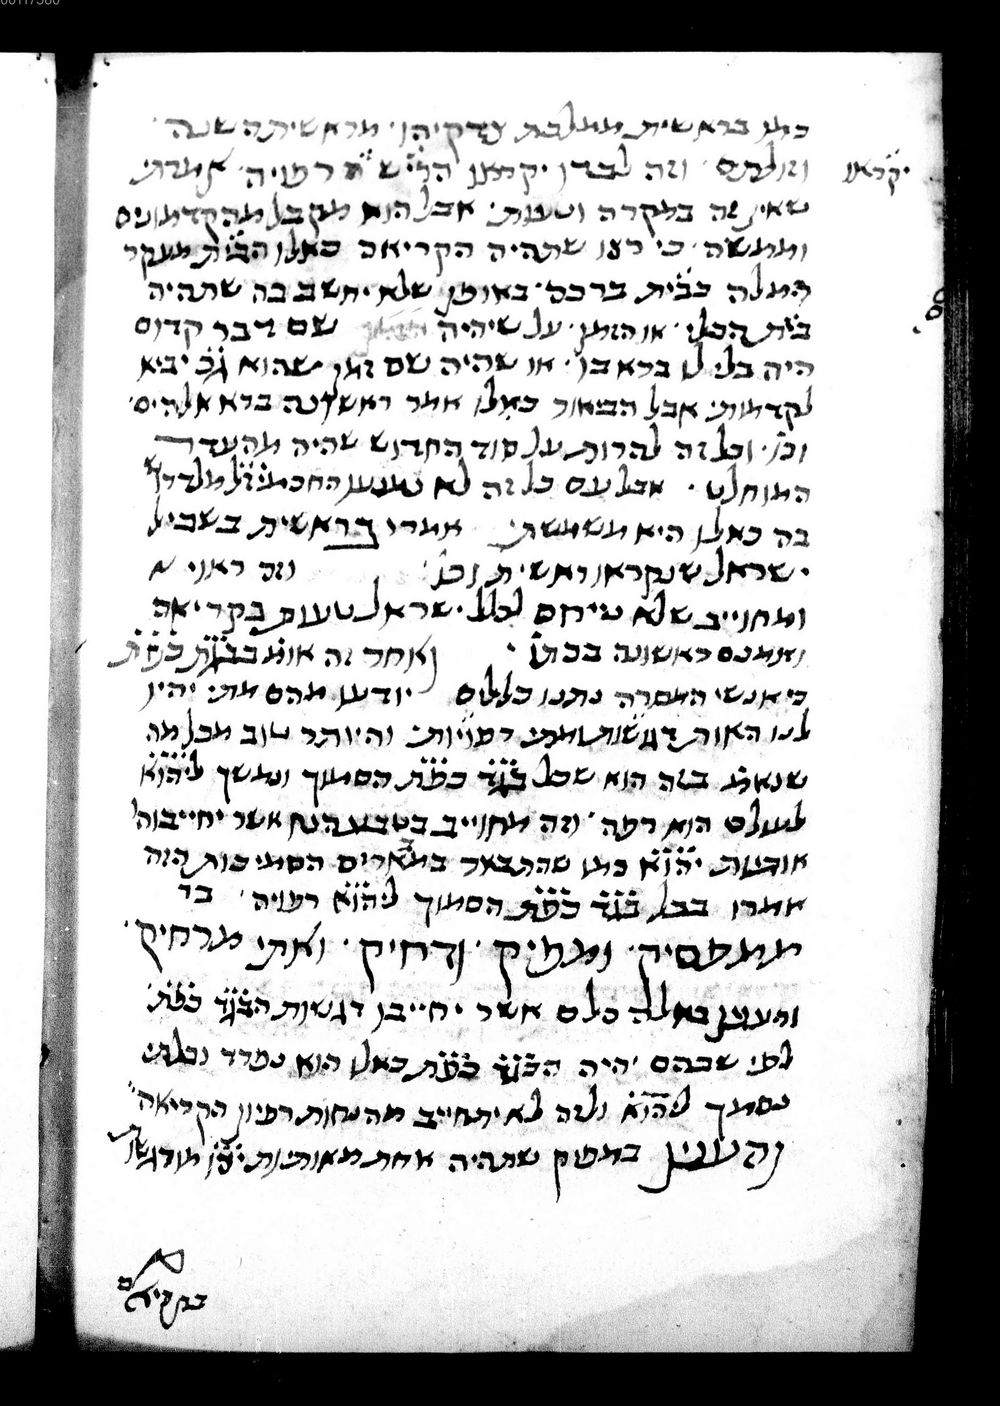 כמו בראשית ממלכת צדקיהו· מראשית השנה·
וזולתם· וזה לבדו יקראו
שאין זה במקרה וטעות· אבל הוא מקבל מהקדמונים
וממשה· כי רצו שתהיה הקריאה כאלו הבי״ת מעקר
המלה כבי״ת ברכה· באופן שלא יחשב בה שתהיה
בי״ת הכלי· או הזמן· על שיהיה שם דבר קדום
היה כלי לו ברא בו· או שהיה שם זמן שהוא יביא
לקדמות· אבל הביאור כאלו אמר ראשונה ברא אלהים·
וכו׳· וכל זה להורות על סוד החדוש שהיה מהעדר
המוחלט· אבל עם כל זה לא נמנעו החכמי׳ ז״ל מלדרוש
בה כאלו היא משמשת· אמרו בראשית בשביל
ישראל שנקראו ראשית וכו׳ וזה ראוי
ומחוייב שלא נייחס לכלל ישראל טעות בקריאה
ואמנם ראשונה בכתו׳· ואחר זה אומ׳ בבג״ד כפ״ת
כי אנשי המסרה נתנו כללים יודעו מהם מתי יהיו
לנו האות דגשות ומתי רפויות· והיותר טוב מכל מה
שנאמ׳ בזה הוא שכל בג״ד כפ״ת הסמוך ונמשך ליהו״א
לעולם הוא רפה· וזה מחוייב בטבע הנח אשר יחייבוהו
אותיות יהו״א כמו שהתבאר במאמרים הסמיכות הזה
אמרו בכל בג״ד כפ״ת הסמוך ליהו״א רפויה· בר
ממפסיק· ומפיק· ודחיק· ואתי מרחיק·
והענין באלה כלם אשר יחייבו דגשות הבג״ד כפ״ת·
לפי שבהם יהיה הבג״ד כפ״ת כאלו הוא נפרד ובלתי
נסמך ליהו״א ולזה לא יתחייב מהנחות רפיון הקריאה
והענין במפיק שתהיה אחת מאותיות יהו״א מודגשת